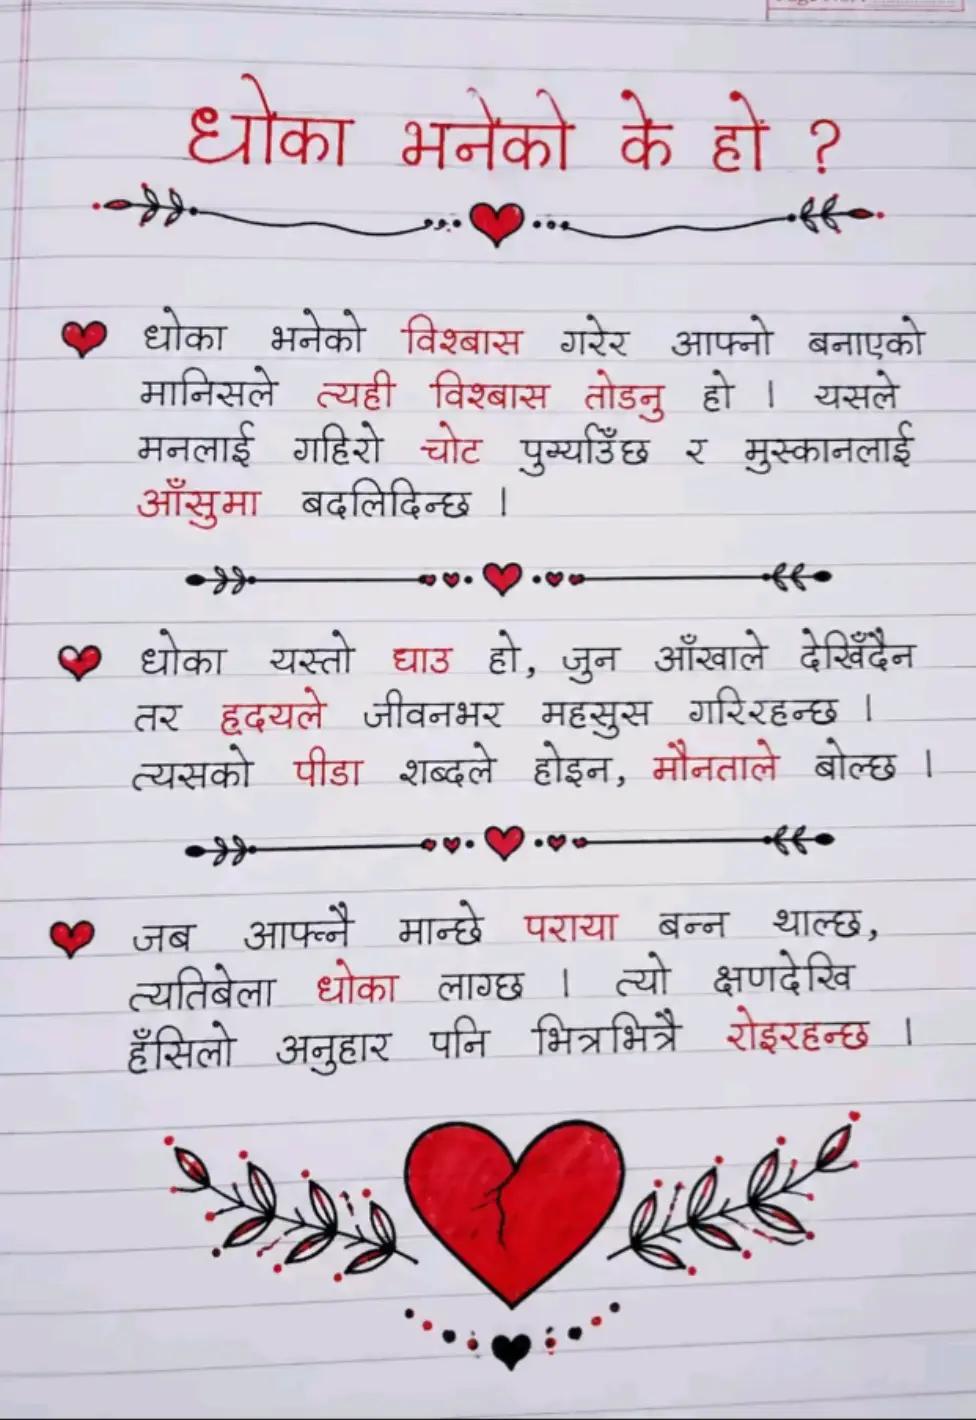 धोका भनेको के हो ?
धोका भनेको विश्बास गरेर आफ्नो बनाएको
मानिसले त्यही विश्बास तोडनु हो ।  यसले
मनलाई गहिरो चोट पुर्‍याउँछ र मुस्कानलाई
आँसुमा बदलिदिन्छ ।
धोका यस्तो घाउ हो, जुन आँखाले देखिँदैन
तर हृदयले जीवनभर महसुस गरिरहन्छ ।
त्यसको पीडा शब्दले होइन, मौनताले बोल्छ ।
जब आफ्नै मान्छे पराया बन्न थाल्छ,
त्यतिबेला धोका लाग्छ । त्यो क्षणदेखि
हँसिलो अनुहार पनि भित्रभित्रै रोइरहन्छ ।